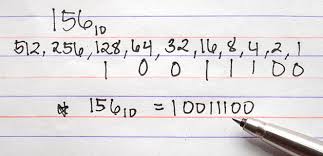 156₁₀
512, 256, 128, 64, 32, 16, 8, 4, 2, 1
1 0 0 1 1 1 0 0
* 156₁₀ = 10011100